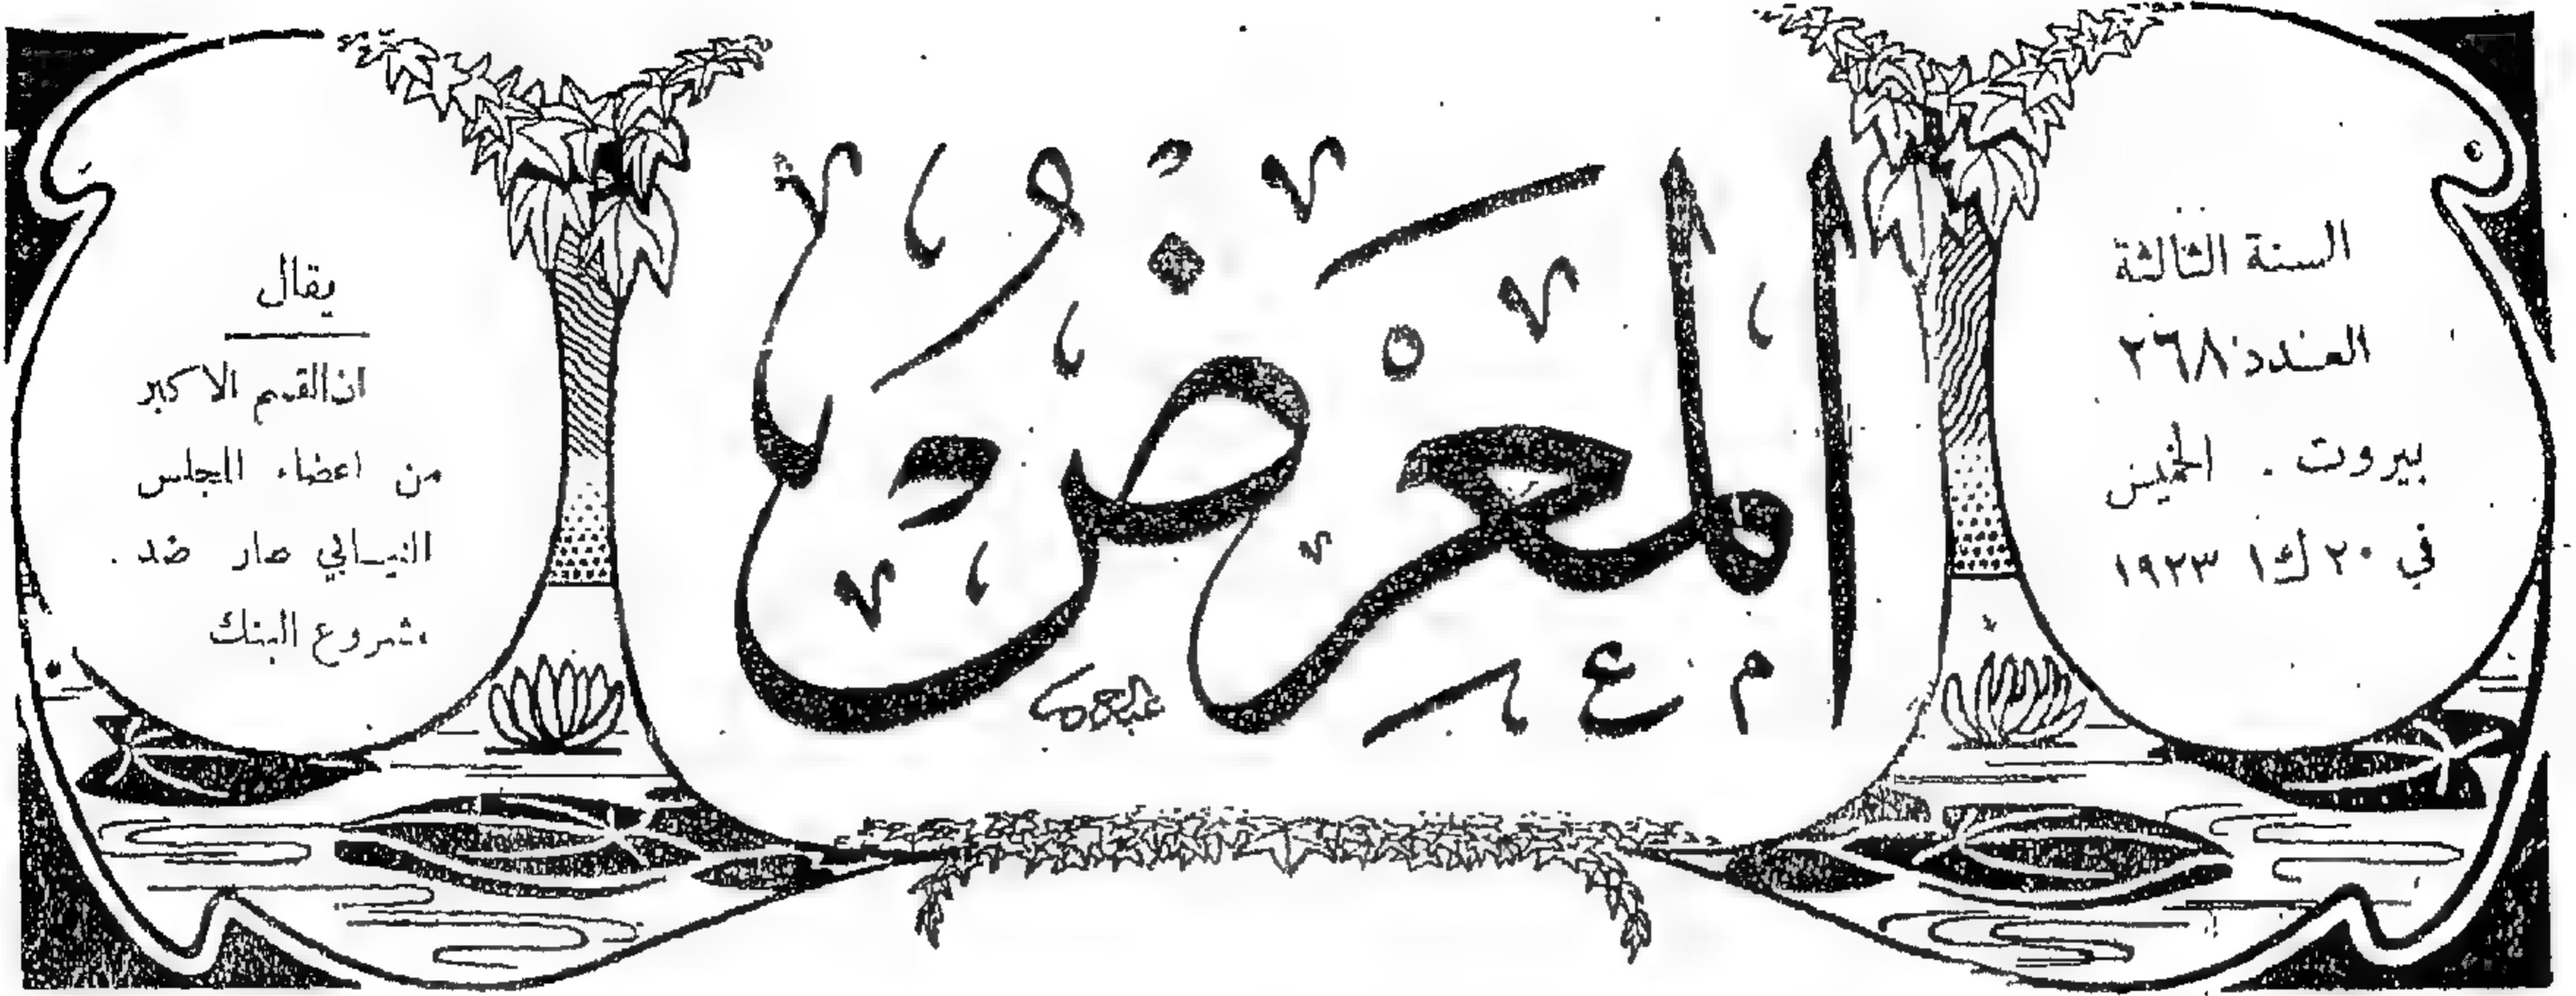 السنة الثالثة
العدد ٢٦٨
بيروت . الخميس
في ٢٠ ك١ ١٩٢٣
المعرض
يقال
ان القسم الاكبر
من اعضاء المجلس
النيابي صار ضد
مشروع البنك